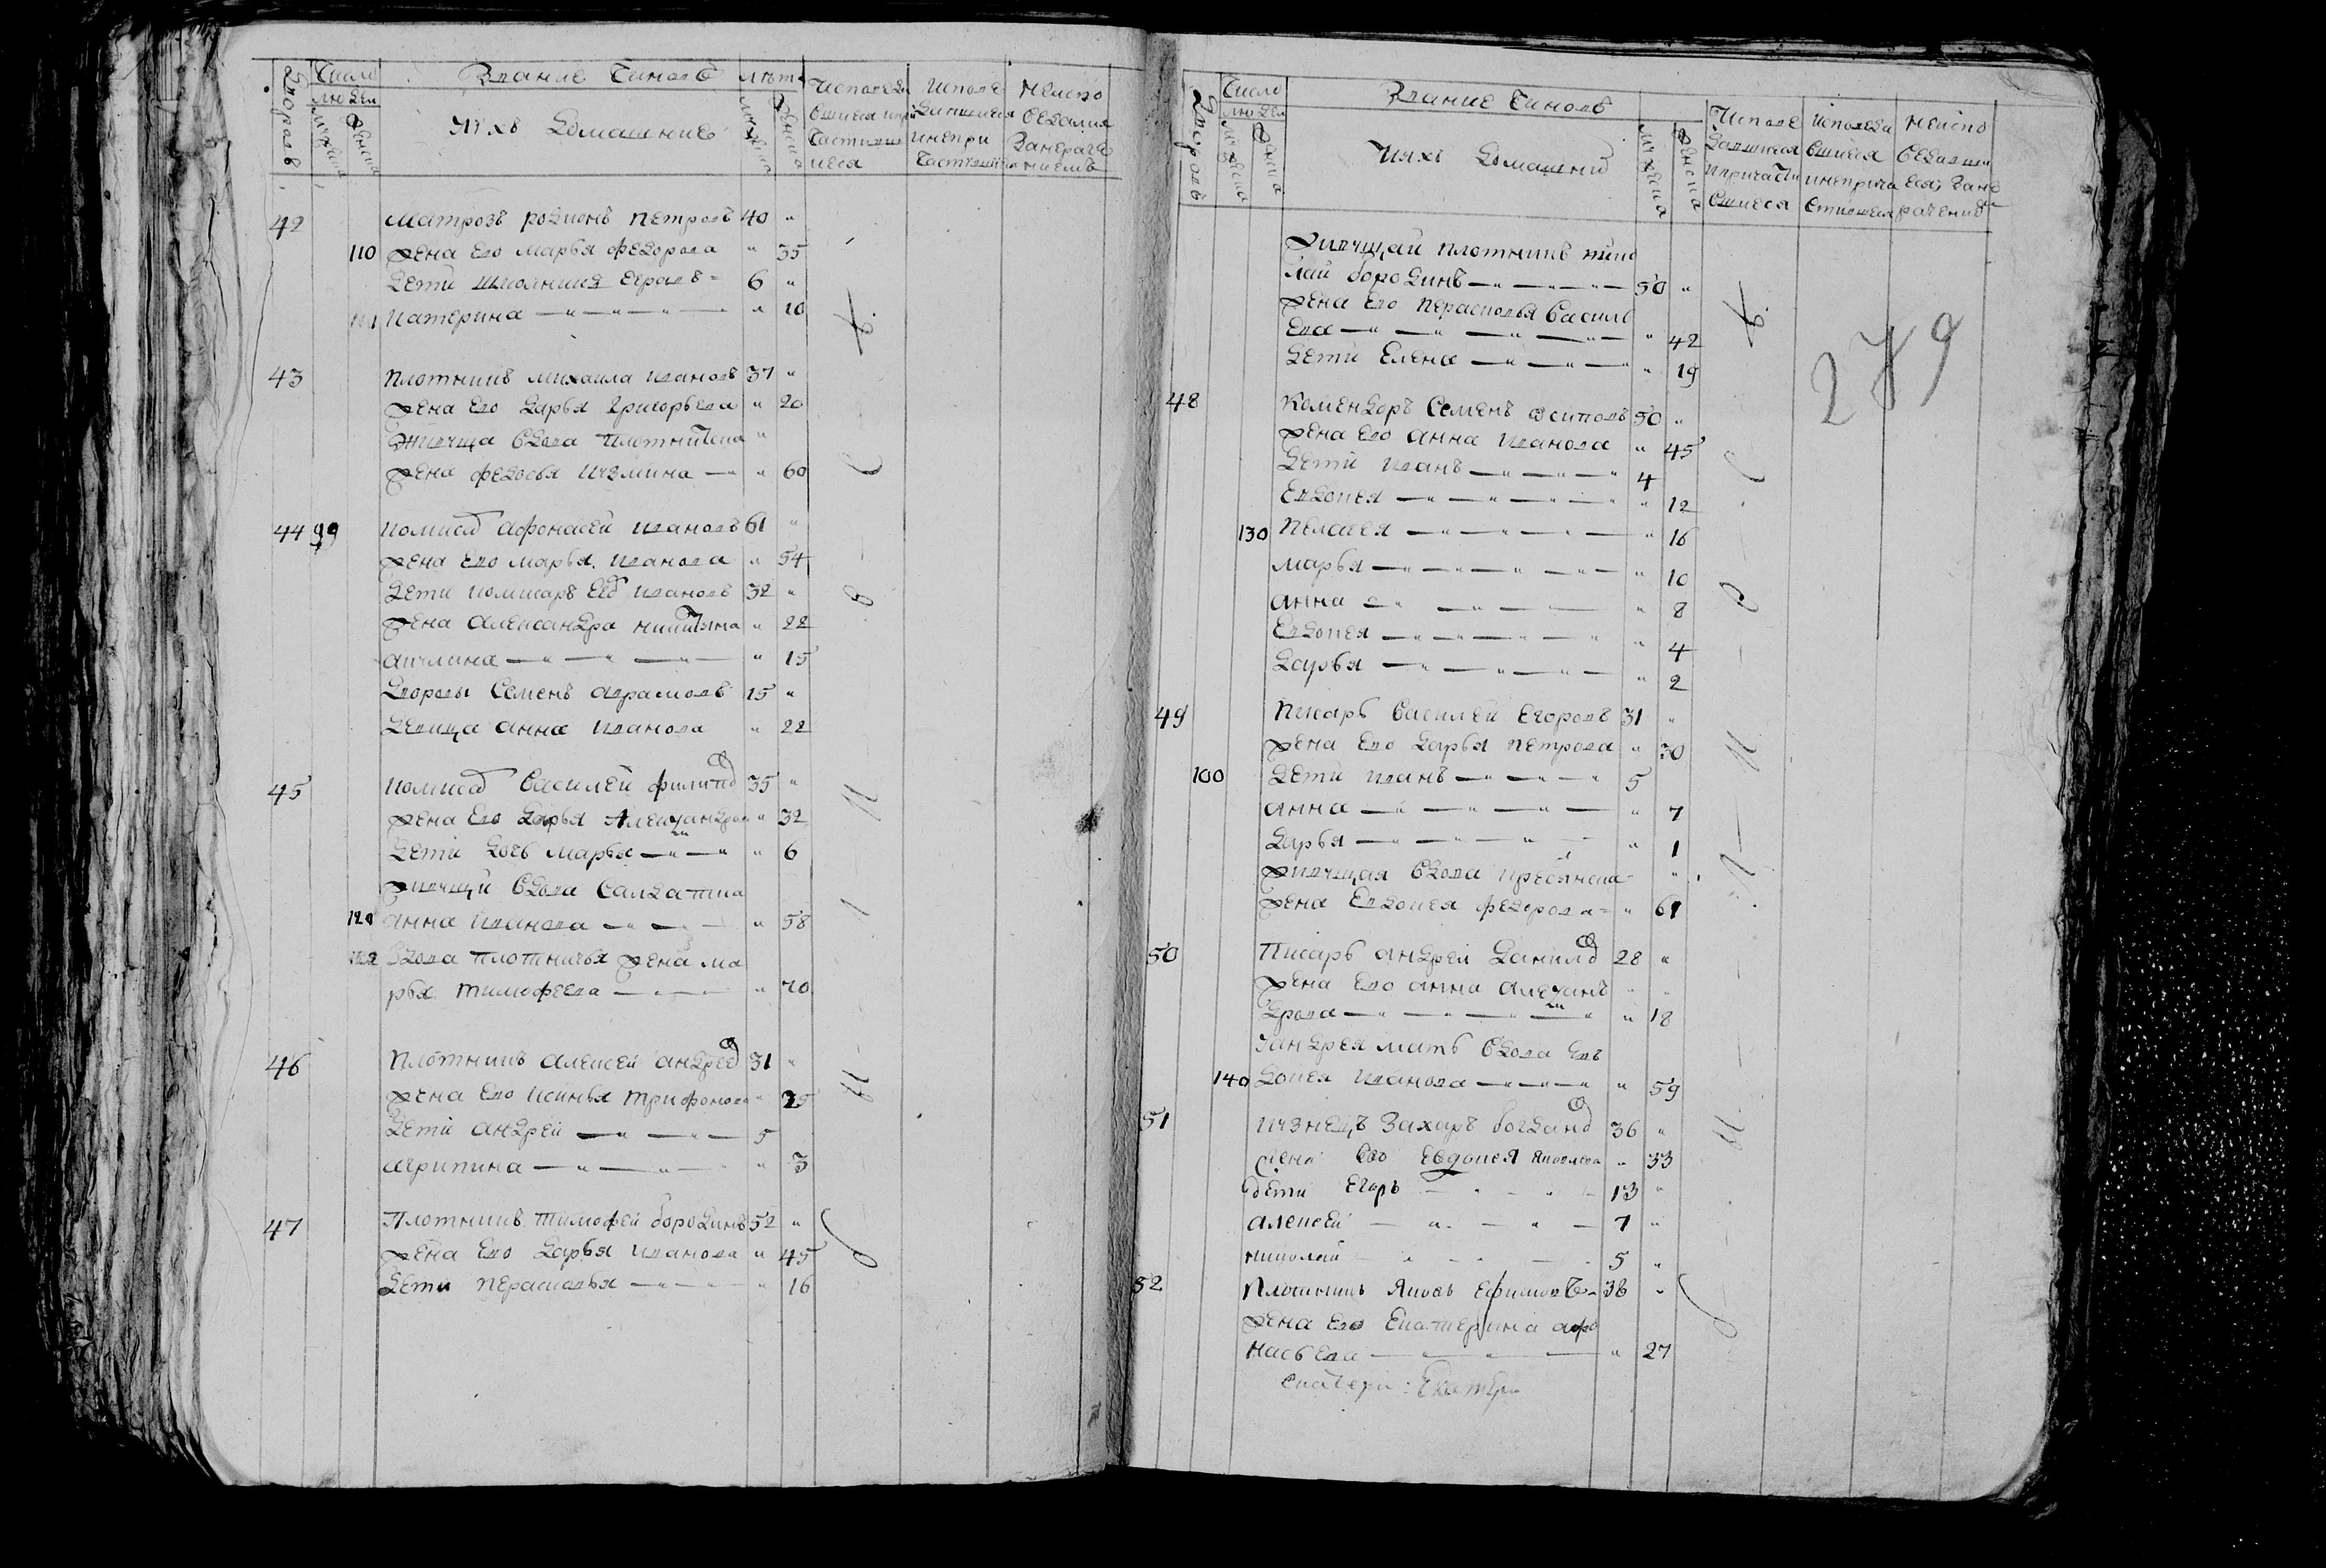 Дворовъ
Число
людей
мужеска
женска
Звание Чиновъ
и ихъ домашнихъ
лѣтъ
мужеска
женска
Исповеда
вшиеся и при
частивши
иеся
Исповѣ
давшиеся
и непри
частившиеся
Неиспо
ведались
42 Матрозъ родионъ Петровъ 40 "
110 жена Ево марья федорова " 35
дети 6 "
111 катерина — " — " — " 10
43 Плотникъ михаила ивановъ 37 "
жена Ево дарья григорьева " 20
живуща вдова плотничена "
жена федосья кузмина — " " 60
44 99 комисаръ афонасей ивановъ 61 "
жена Ево марья ивнова " 54
дети ивановъ 32 "
жена александра никитина " 22
акулина — " — " — " " 15
дворовы Семенъ аврамовъ 15 "
девица анна иванова " 22
45 Василей филипов 35 "
жена Ево дарья Александров " 32
дети дочь марья — " — " " 6
живущи вдова салдатска
120 анна иванова — " — " " 58
вдова плотничья жена ма
рья тимофеева — " 70
46 Плотникъ алексей андреев 31 "
жена Ево ксинья трифонова " 25
дети андрей — " — " 5
агрипина — " — " " 3
47 Плотникъ тимофей бородинъ 52 "
жена Ево дарья иванова " 45
дети Перасковья — " — " " 16
Дворовъ
Число
людей
мужеска
женска
Звание Чиновъ
и ихъ домашни
мужеска
женска
Исповѣ
давшиеся
и причасти
вшиеся
Исповеда
вшиеся
и неприча
стившиеся
Неиспо
ведавши
еся
279
живущай плотникъ нико
лай бородинъ — " — " — " — 50 "
жена Ево перасковья василь
ева — " — " — " — " 42
дети Елена — " — " — " 19
48 Комендоръ Семенъ осиповъ 50 "
жена Ево анна иванова " 45
дети иванъ — " — " — " 4
Евдокея — " — " — " " 12
130 пелагея — " — " — " " 16
марья — " — " — " " 10
анна — " — " — " 8
Евдокея — " — " — " " 4
дарья — " — " — " " 2
49 Писарь василей Егоровъ 31 "
жена Ево дарья петрова " 30
100 дети иванъ — " — " — " 5
анна — " — " — " " 7
дарья — " — " — " " 1
живущая вдова кресьянска "
жена Евдокея федорова " 61
50 Писарь андрей данилов 28 "
жена Ево анна алексанъ " "
дрова — " — " — " " 18
У андрея мать вдова Ев
140 докея иванова — " — " — " " 59
51 кузнецъ Захаръ богданов 36 "
жена Ево Евдокея яковлева " 33
дети Егоръ — " — " — 13 "
алексей — " — " — 7 "
николай — " — 5 "
52 Плотникъ Яковъ Ефимовъ 38 "
жена Ево Екатерина афо
насьева — " — " 27
Екатери